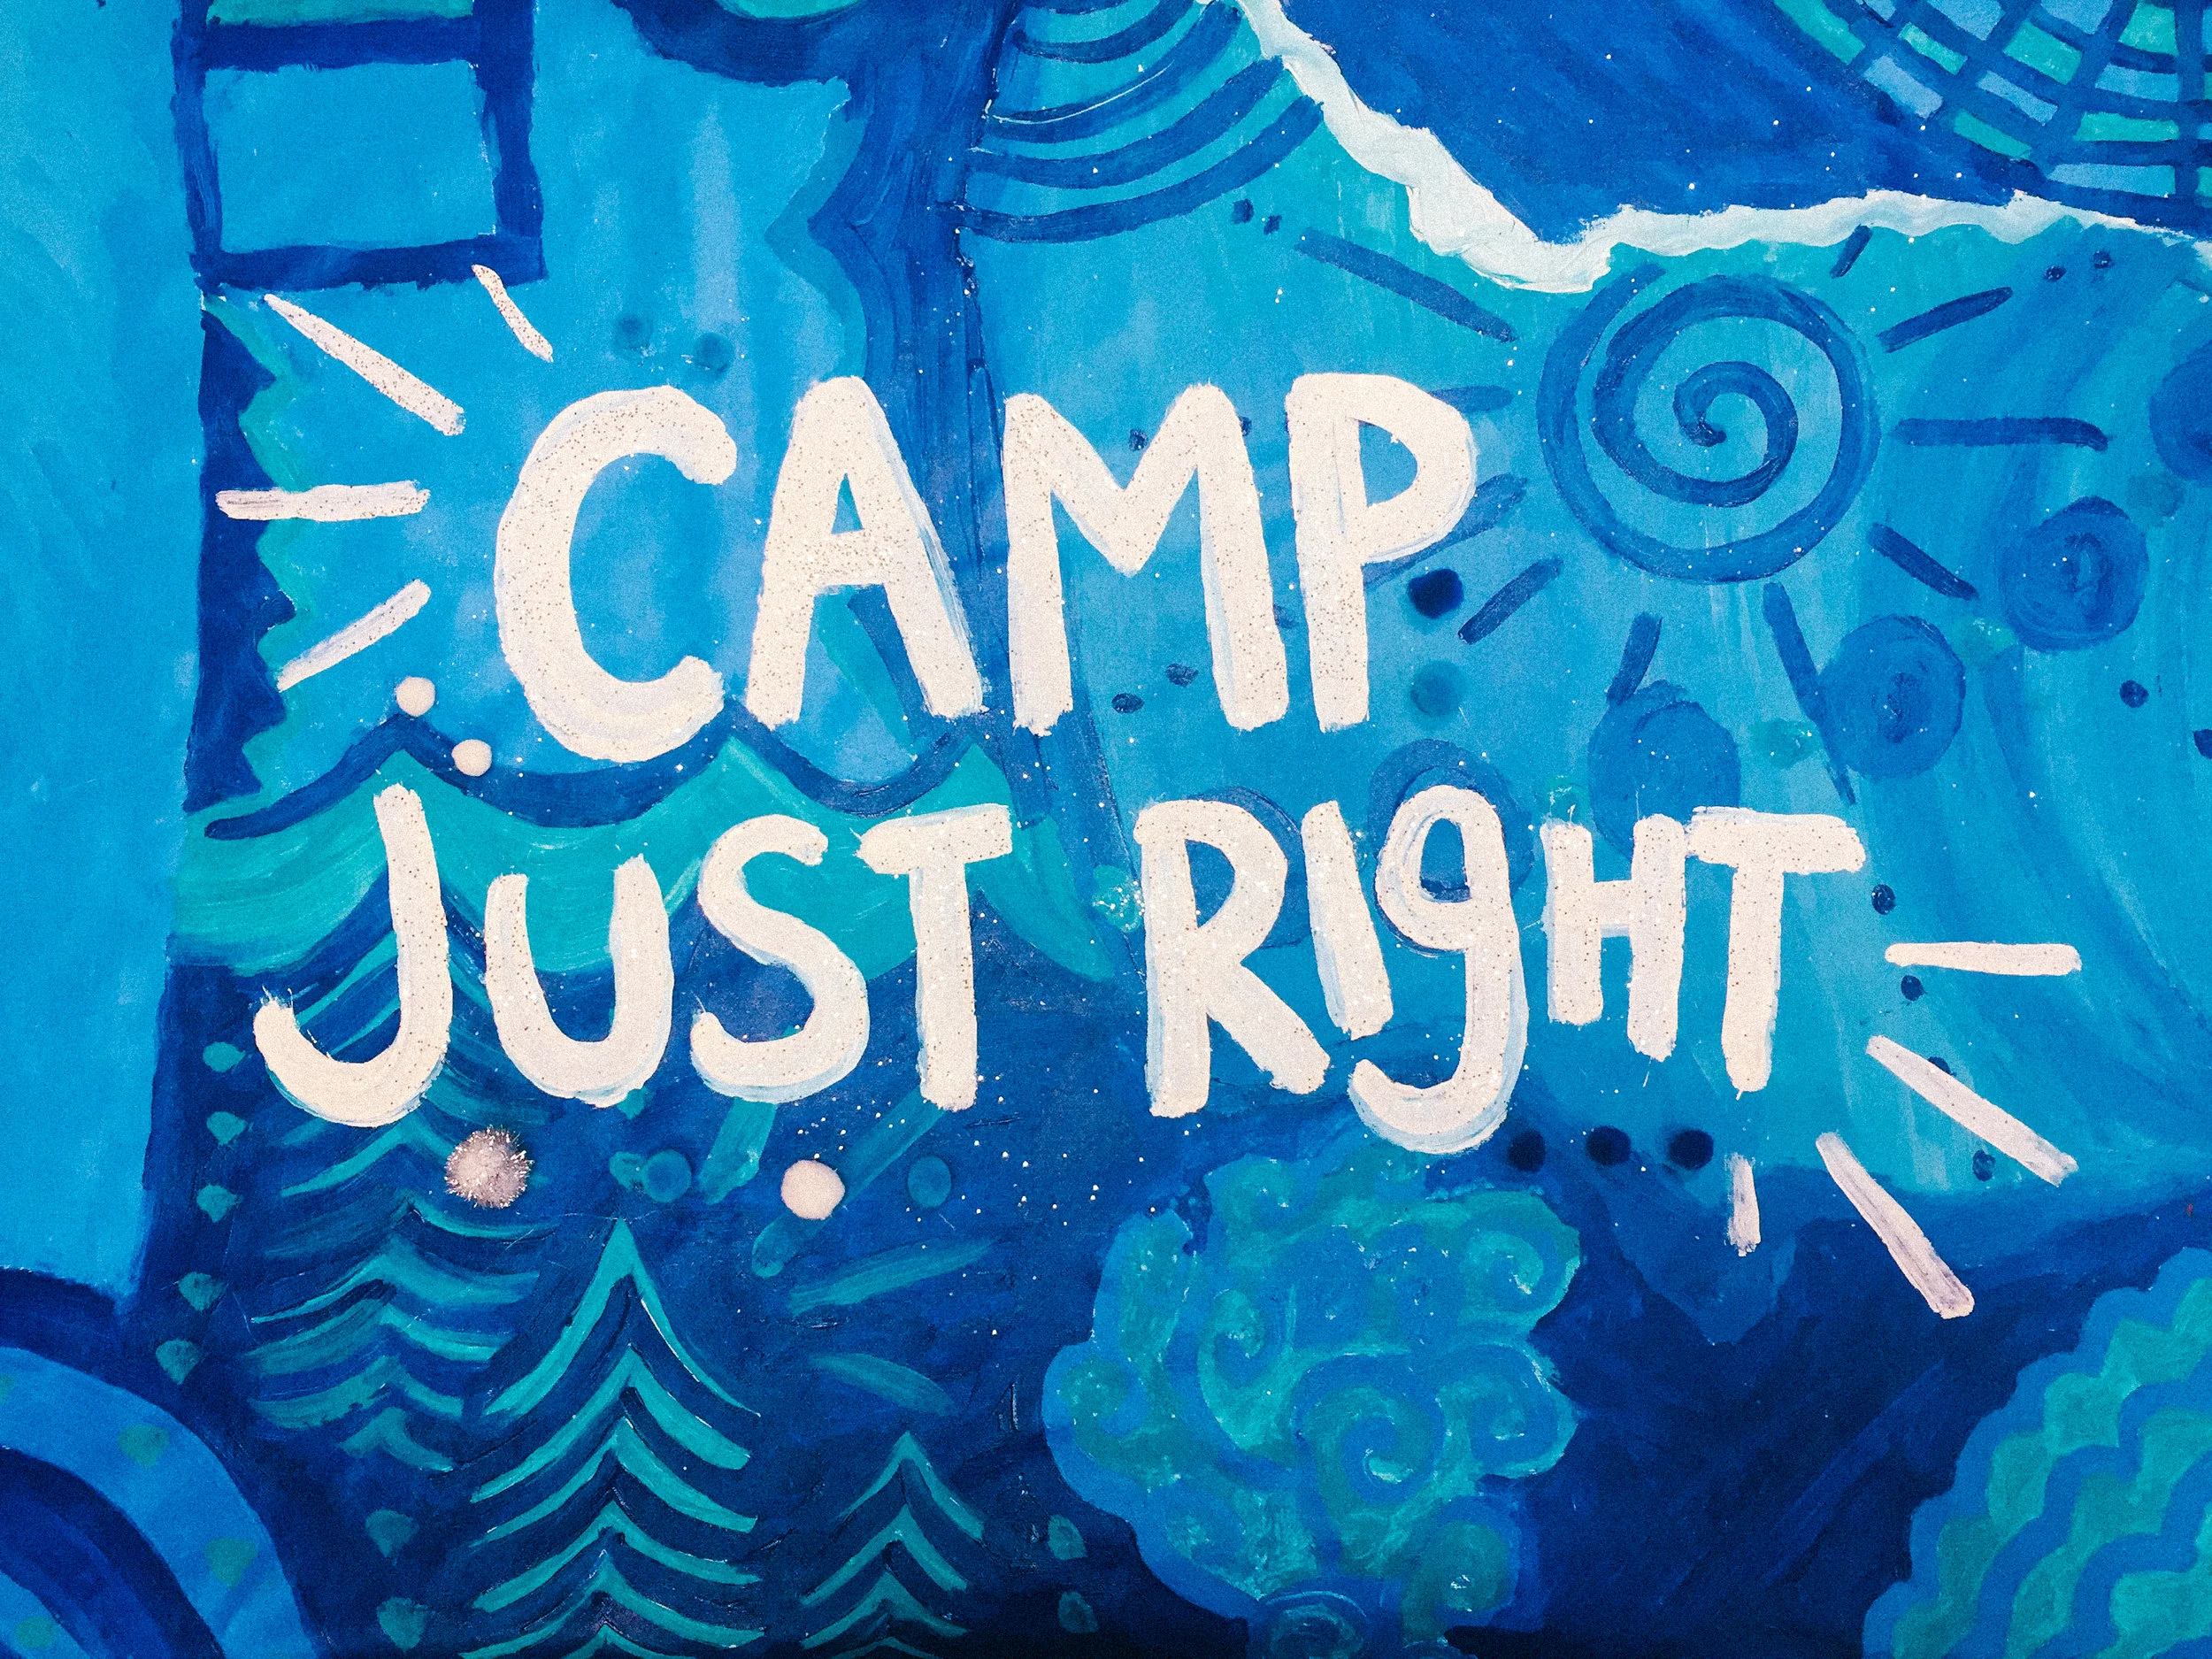 CAMP
JUST RIgHT